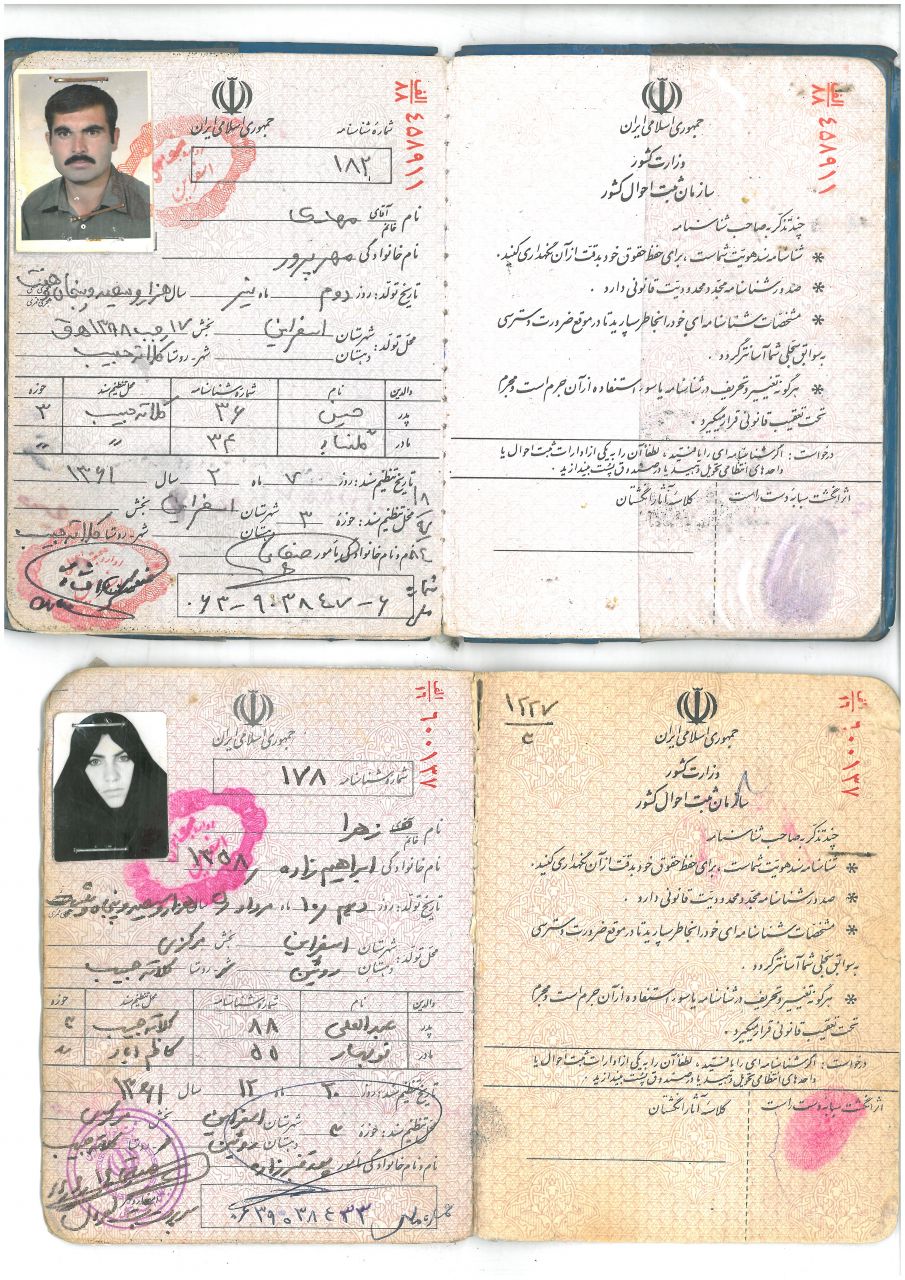 جمهوری اسلامی ایران
شمارهٔ شناسنامه
۱۸۲
الف
۸۸
۴۵۸۹۱۱
نام آقای خانم مهدی
نام خانوادگی مهرپرور
تاریخ تولد: روز دوم ماه تیر سال هزار و سیصد و پنجاه و هفت
محل تولد: شهرستان اسفراین بخش ۱۷ رجب ۱۳۹۸ ه‍ ق
دهستان شهر - روستا کلاته حبیب
والدین نام شمارهٔ شناسنامه محل تنظیم سند حوزه
پدر حسن ۳۶ کلاته حبیب ۳
مادر ۳۴ 〃 〃
تاریخ تنظیم سند: روز ۷ ماه ۲ سال ۱۳۶۱
محل تنظیم سند: حوزه ۳ شهرستان اسفراین بخش
دهستان شهر - روستا کلاته حبیب
نام و نام خانوادگی مأمور صفائی
شماره ملی
۰۶۳-۹۰۳۸۴۷-۶
الف
۸۸
۴۵۸۹۱۱
جمهوری اسلامی ایران
وزارت کشور
سازمان ثبت احوال کشور
چند تذکر به صاحب شناسنامه
* شناسنامه سند هویت شماست ، برای حفظ حقوق خود به دقت از آن نگهداری کنید .
* صدور شناسنامه مجدد محدودیت قانونی دارد .
* مشخصات شناسنامه‌ای خود را بخاطر بسپارید تا در موقع ضرورت دسترسی
به سوابق سجلی شما آسانتر گردد .
* هرگونه تغییر و تحریف در شناسنامه یا سوء استفاده از آن جرم است و مجرم
تحت تعقیب قانونی قرار میگیرد .
درخواست : اگر شناسنامه‌ای را یافتید ، لطفاً آن را به یکی از ادارات ثبت احوال یا
واحدهای انتظامی تحویل دهید یا در صندوق پست بیندازید .
اثر انگشت سبابه دست است
کلاسه آثار انگشتان
جمهوری اسلامی ایران
الف
۱۹
۶۰۰۱۳۷
شمارهٔ شناسنامه ۱۷۸
نام خانم زهرا
نام خانوادگی ابراهیم زاده
۱۳۵۸
تاریخ تولد: روز دهم ۱۰ ماه مرداد ۵ سال هزار و سیصد و پنجاه و هشت
محل تولد: شهرستان اسفراین بخش مرکزی
دهستان روئین شهر - روستا کلاته حبیب
والدین نام شمارهٔ شناسنامه محل تنظیم سند حوزه
پدر عبدالعلی ۸۸ کلاته حبیب ۳
مادر نوبهار ۵۵ کاظم آباد
تاریخ تنظیم سند: روز ۲۰ ماه ۱۲ سال ۱۳۶۱
محل تنظیم سند: حوزه ۳ شهرستان اسفراین بخش مرکزی
دهستان روئین شهر - روستا کلاته حبیب
نام و نام خانوادگی مأمور
شماره ملی
۰۶۳۹۰۳۸۴۳۳
۱۲۲۷
الف
۱۹
۶۰۰۱۳۷
جمهوری اسلامی ایران
وزارت کشور
سازمان ثبت احوال کشور
چند تذکر به صاحب شناسنامه
* شناسنامه سند هویت شماست ، برای حفظ حقوق خود به دقت از آن نگهداری کنید .
* صدور شناسنامه مجدد محدودیت قانونی دارد .
* مشخصات شناسنامه‌ای خود را بخاطر بسپارید تا در موقع ضرورت دسترسی
به سوابق سجلی شما آسانتر گردد .
* هرگونه تغییر و تحریف در شناسنامه یا سوء استفاده از آن جرم است و مجرم
تحت تعقیب قانونی قرار میگیرد .
درخواست : اگر شناسنامه‌ای را یافتید ، لطفاً آن را به یکی از ادارات ثبت احوال یا
واحدهای انتظامی تحویل دهید یا در صندوق پست بیندازید .
اثر انگشت سبابه دست است
کلاسه آثار انگشتان